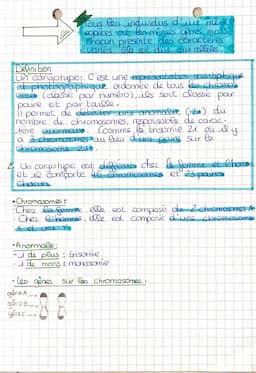 Tous les individus d'une même
espèce ont les mêmes gènes, mais
chacun présente des caractères
variés
Définition
Un caryotype: C'est une représentation
et photographique ordonnée de tous les chromo-
somes (classé par numéro), ils sont classé par
paire et par taille.
Il permet de détecter une anomalie du
nombre de chromosomes, responsable de carac-
tère anormaux (comme la trisomie 21 où il y
a 3 chromosomes au lieu d'une paire sur la
chromosome 21)
Un caryotype est différent chez la femme et l'homme
et il comporte 46 chromosomes et 23 paires
chacun.
• Chromosomes:
- Chez la femme, elle est composé de 2 chromosomes X
- Chez l'homme, elle est composé d'une chromosome
X et d'un Y
• Anormale:
- 1 de plus : trisomie
- 1 de moins : monosomie
• Les gènes sur les chromosomes.
gène A
gène B
gène C